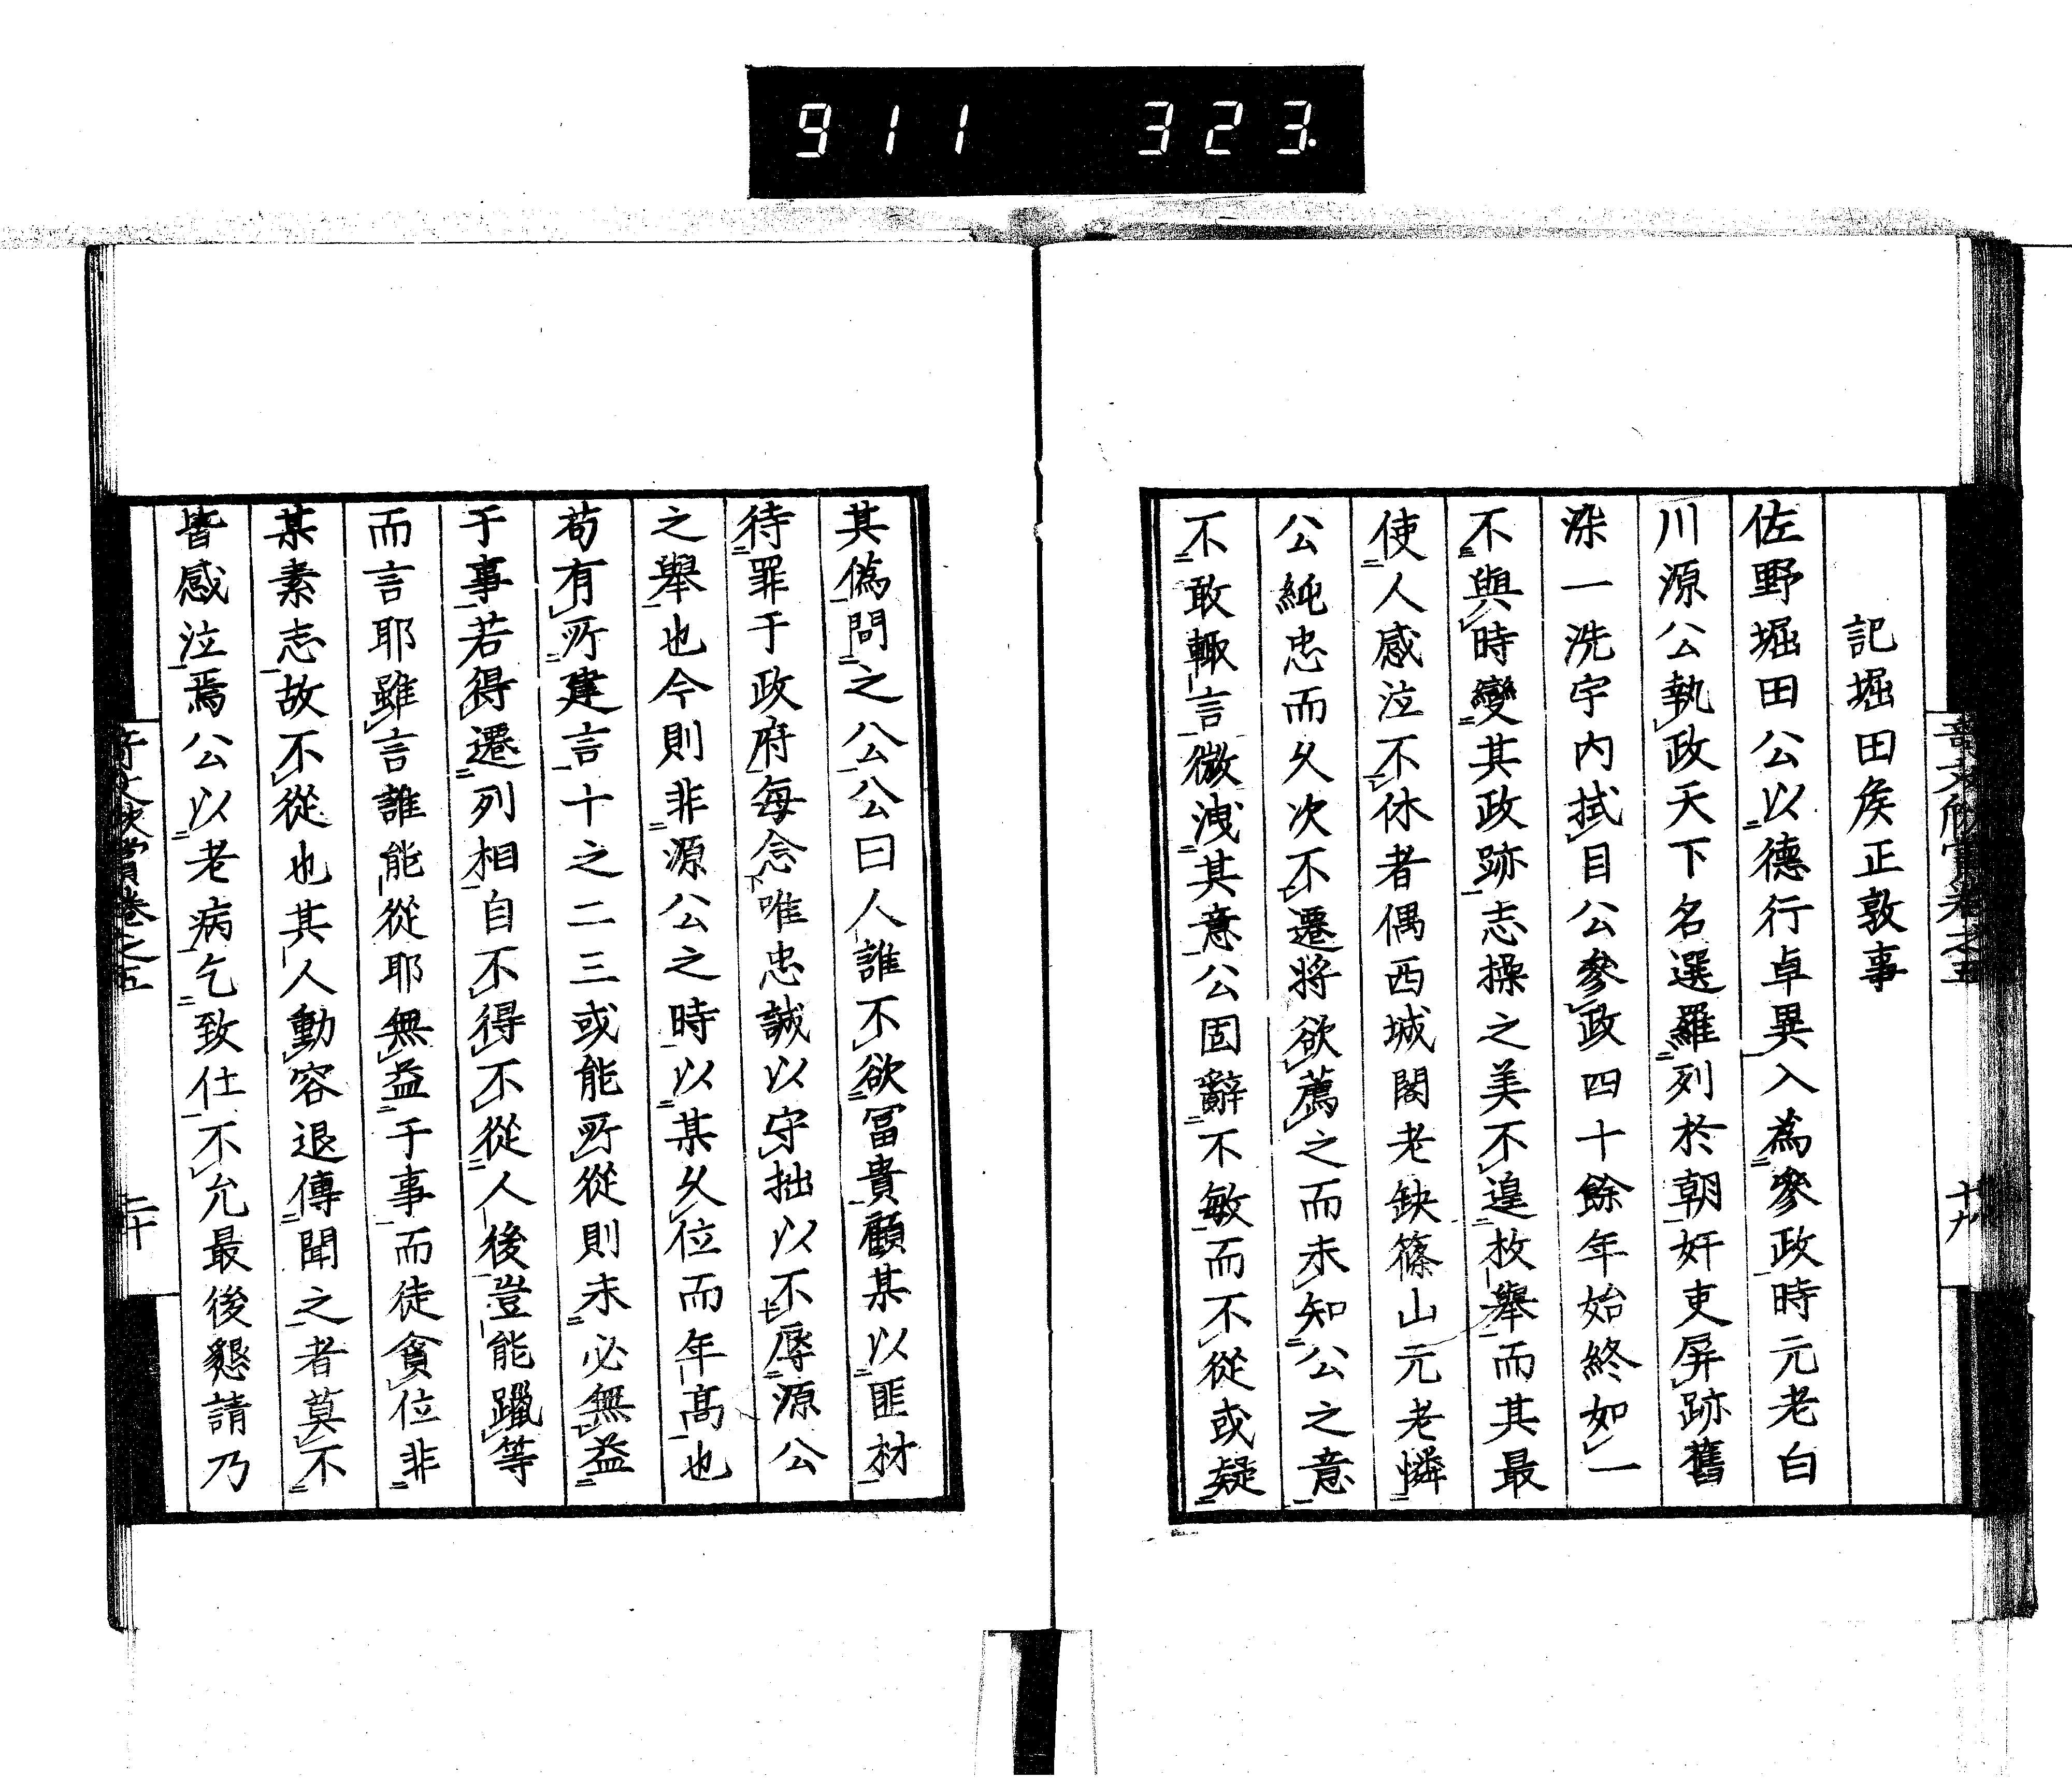 911 323.
記堀田矦正敦事
佐野堀田公以德行卓異入為參政時元老白
川源公執政天下名選羅列於朝奸吏屏跡舊
染一洗宇內拭目公參政四十餘年始終如一
不與時變其政跡志操之美不遑枚舉而其最
使人感泣不休者偶西城閣老缺篠山元老憐
公純忠而久次不遷將欲薦之而未知公之意
不敢輙言微洩其意公固辭不敏而不從或疑
十九
其偽問之公公曰人誰不欲冨貴顧某以匪材
待罪于政府每念唯忠誠以守拙以不辱源公
之舉也今則非源公之時以某久位而年高也
苟有所建言十之二三或能所從則未必無益
于事若得遷列相自不得不從人後豈能躐等
而言耶雖言誰能從耶無益于事而徒貪位非
某素志故不從也其人動容退傳聞之者莫不
皆感泣焉公以老病乞致仕不允最後懇請乃
賞卷之五
二十